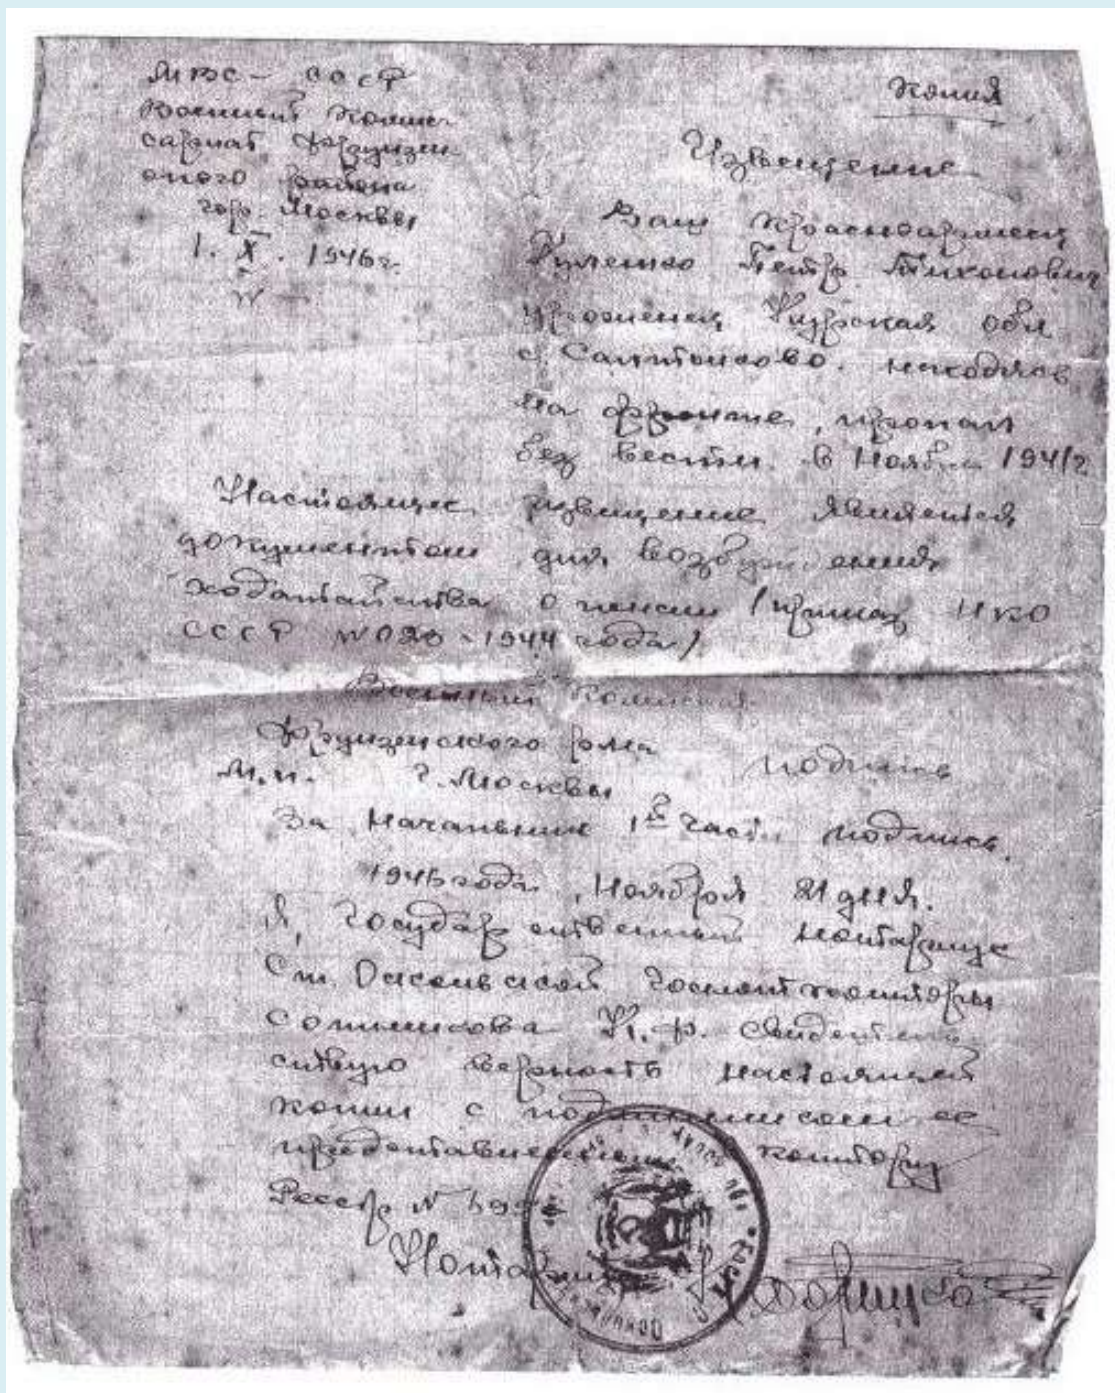 МВС – СССР
Военный Комис-
сариат Фрунзен
ского района
гор. Москвы
1. X. 1946 г.
№ –
Копия
Извещение
Ваш красноармеец
Петр Тихонович
уроженец Курская обл
с. Салтыково. находясь
на фронте, пропал
без вести в Ноябре 1941 г
Настоящее извещение является
документом для возбуждения
ходатайства о пенсии (приказ НКО
СССР № 020 – 1944 года)
Военный Комиссар
Фрунзенского р-на
М.п. г. Москвы подпись
За Начальник 1й части подпись.
1946 года, Ноября 21 дня.
Я, Государственный нотариус
Ст. Оскольской Госнотконторы
К. Ф. свидетель
ствую верность настоящей
копии с подлинником ее
представленным контору
Реестр №
Нотариус